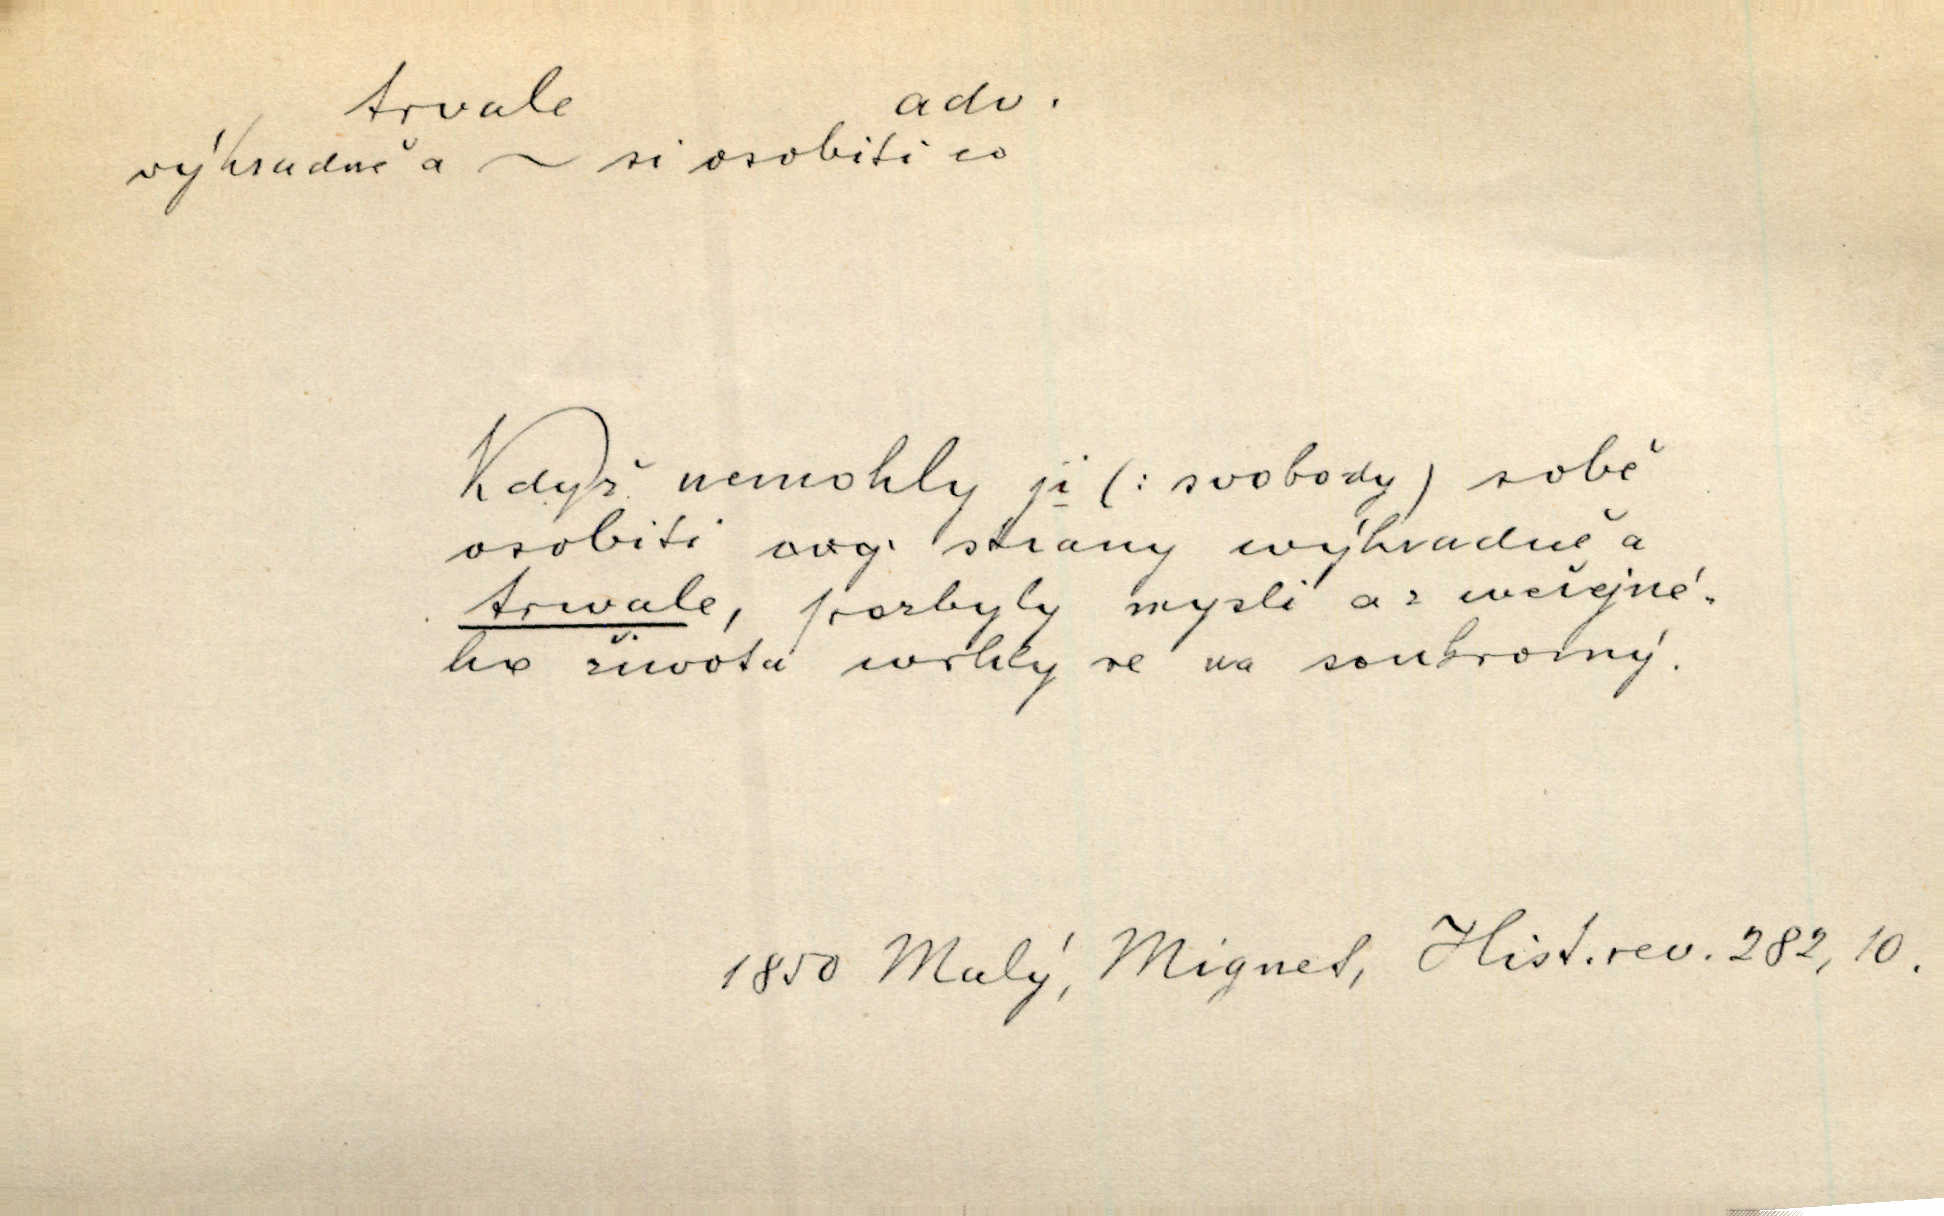 trvale adv.
výhradně a ~ si osobiti co
Když nemohly ji (: svobody) sobě
osobiti strany wýhradně a
trwale, pozbyly mysli a z weřejné-
ho života wrhly se na soukromý.
1850 Malý, Mignet, Hist. rev. 282, 10.